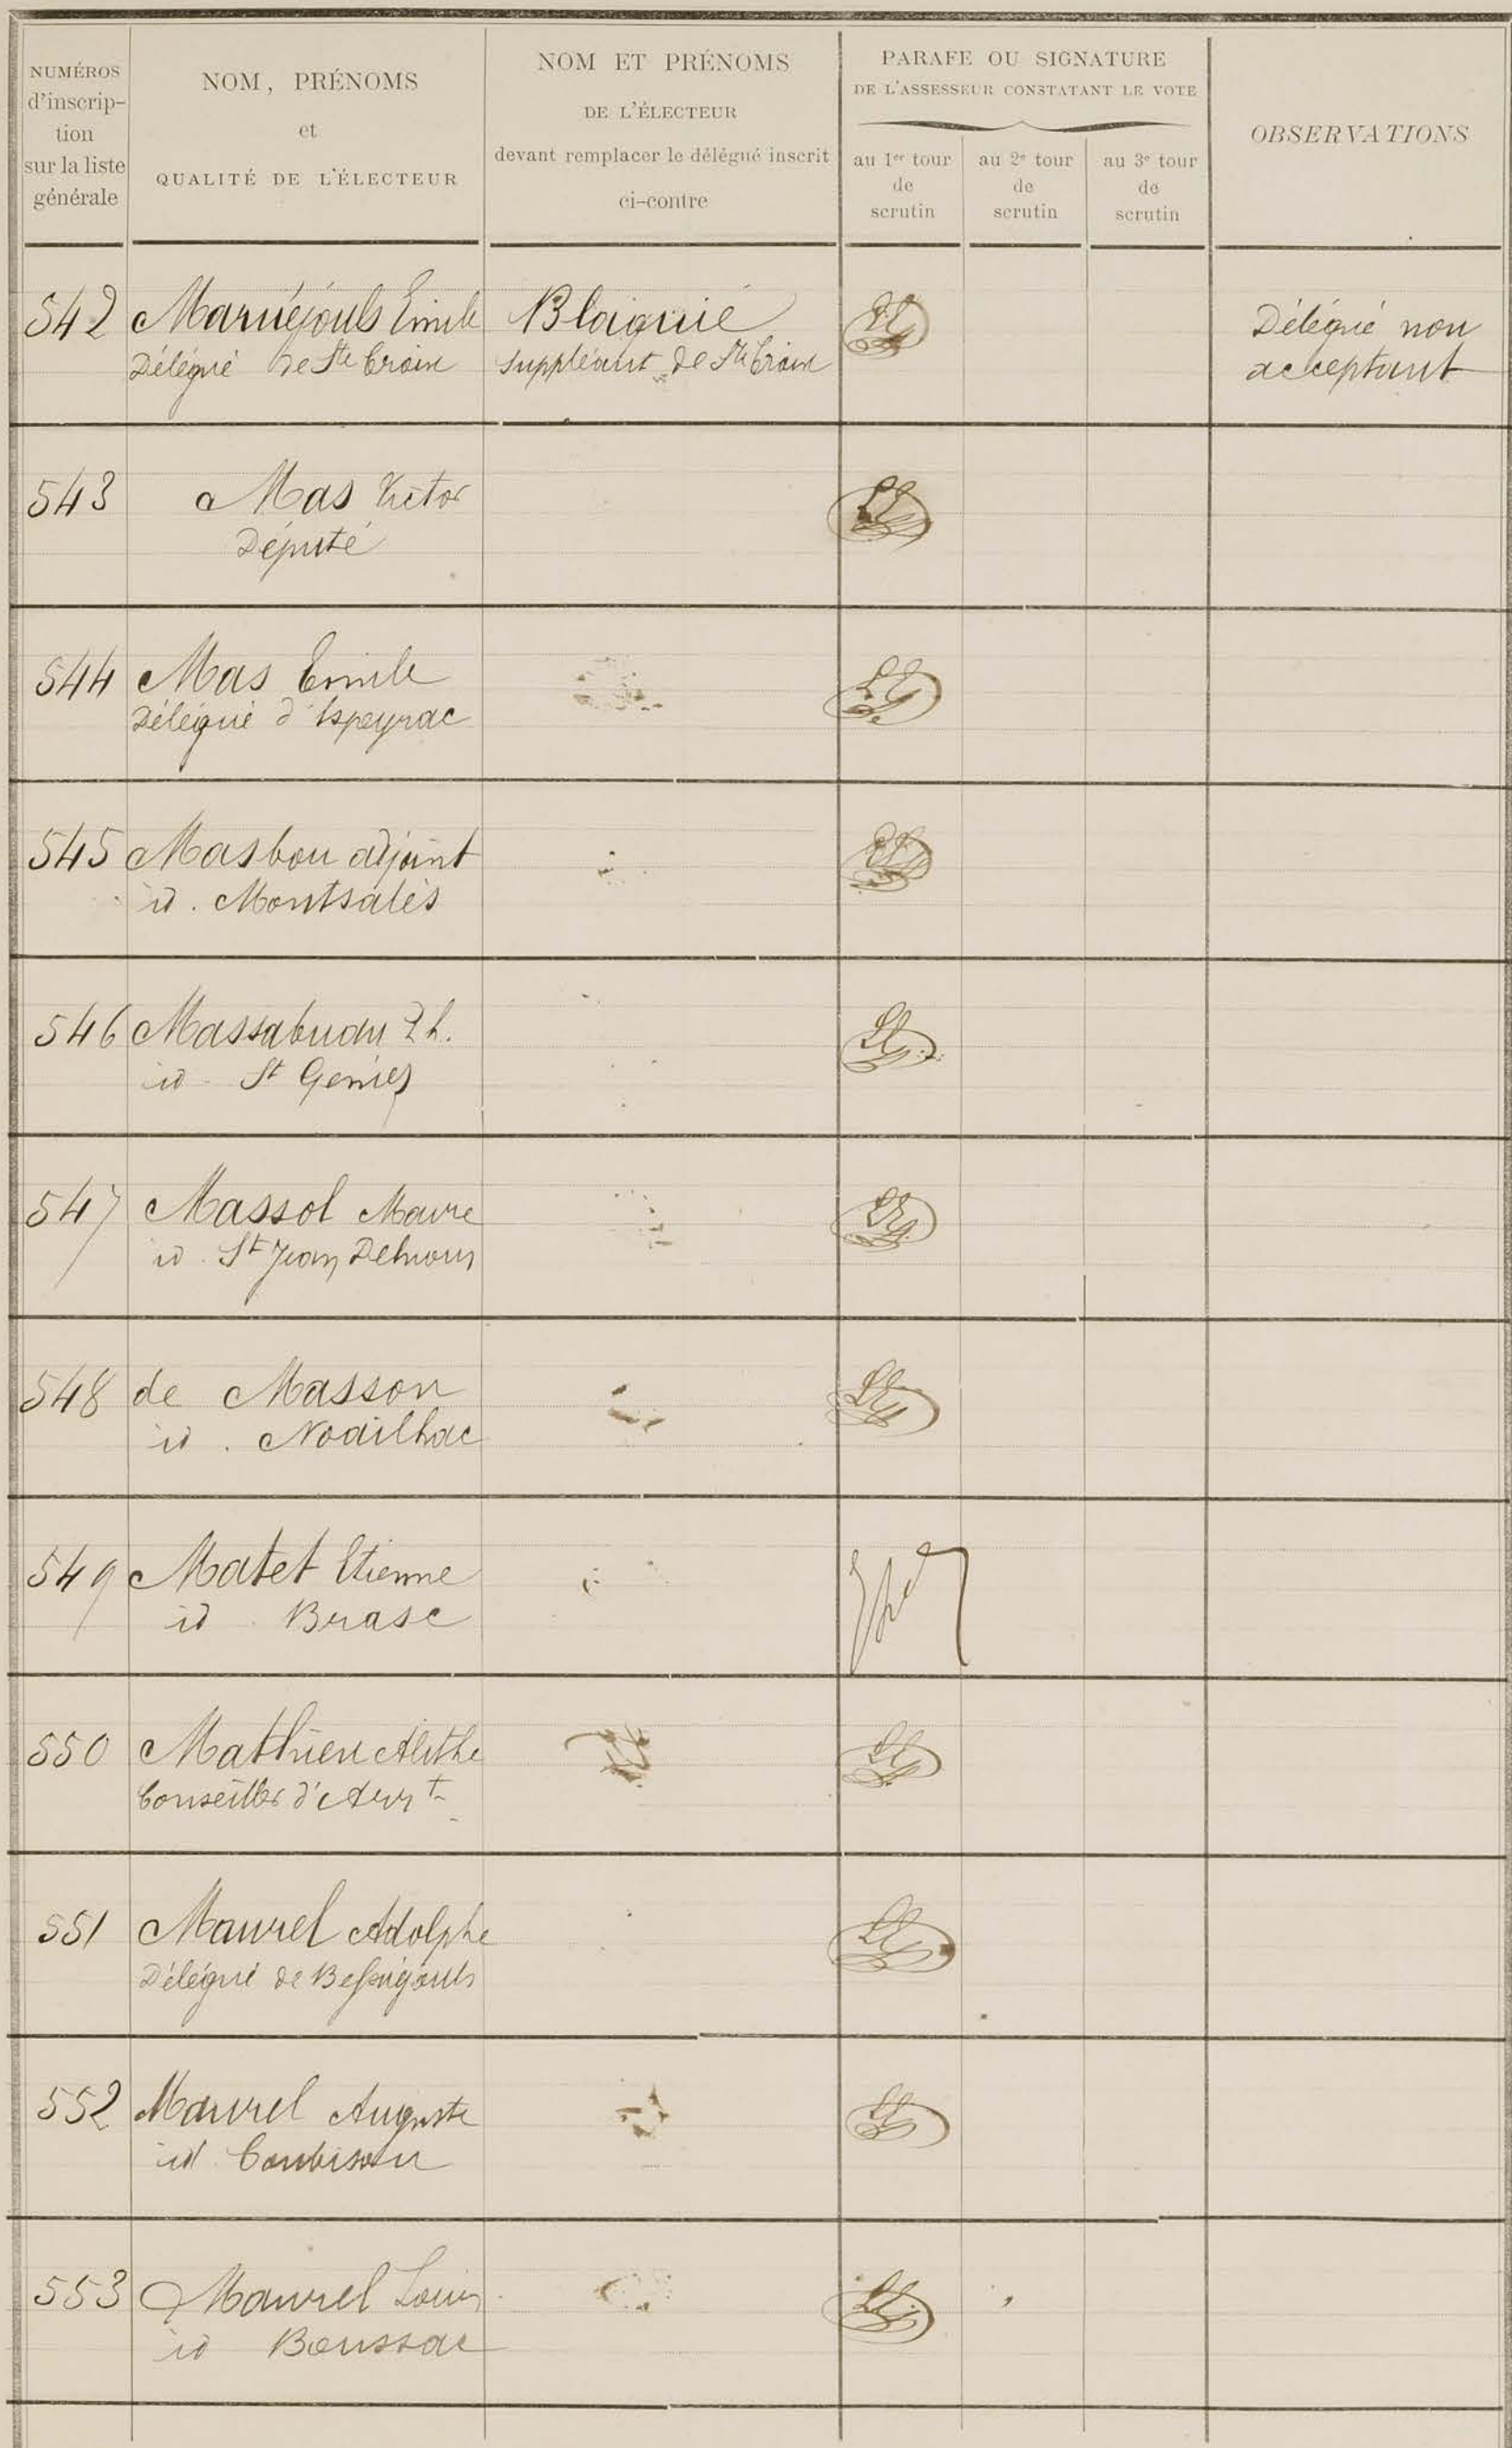 NUMÉROS
d'inscrip-
tion
sur la liste
générale
NOM, PRÉNOMS
et
QUALITÉ DE L'ÉLECTEUR
NOM ET PRÉNOMS
DE L'ÉLECTEUR
devant remplacer le délégué inscrit
ci-contre
PARAFE OU SIGNATURE
DE L'ASSESSEUR CONSTATANT LE VOTE
au 1er tour
de
scrutin
au 2e tour
de
scrutin
au 3e tour
de
scrutin
OBSERVATIONS
542 Maruéjouls Emile Blaquié Délégué non
Délégué de Ste Croix suppléant de Ste Croix acceptant
543 Mas Victor
Député
544 Mas Emile
Délégué d'Espeyrac
545 Masbou adjoint
id. Montsalès
546 Massabuau
id St Geniez
547 Massol Maire
id. St Jean Delnous
548 de Masson
id. Noailhac
549 Matet Etienne
id Brasc
550 Mathieu
Conseiller d'Arrt
551 Maurel Adolphe
Délégué de Bessuéjouls
552 Maurel Auguste
id Coubisou
553 Maurel Louis
id Boussac